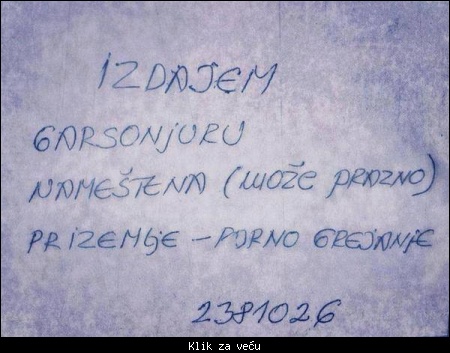 IZDAJEM
GARSONJURU
NAMEŠTENA (MOŽE PRAZNO)
PRIZEMLJE - PARNO GREJANJE
2381026
Klik za veću